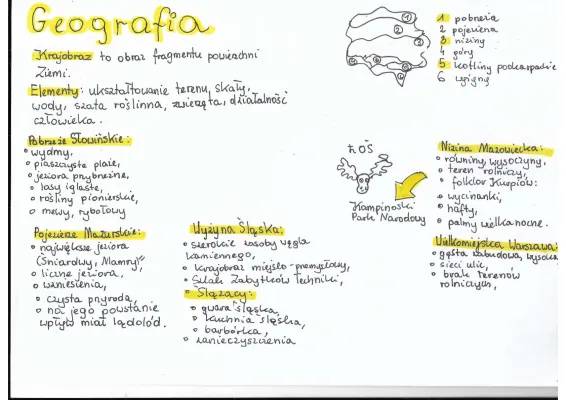 Geografia
Krajobraz to obraz fragmentu powierzchni
Ziemi.
Elementy: ukształtowanie terenu, skały,
wody, szata roślinna, zwierzęta, działalność
człowieka.
1 pobrzeża
2 pojezierza
3 niziny
4 góry
5 kotliny podkarpackie
6 wyżyny
1
2
3
6
5
4
Pobrzeże Słowińskie:
wydmy,
piaszczyste plaże,
jeziora przybrzeżne,
lasy iglaste,
rośliny pionierskie,
mewy, rybołowy
Pojezierze Mazurskie:
największe jeziora
(Śniardwy, Mamry),
liczne jeziora,
wzniesienia,
czysta przyroda,
na jego powstanie
wpływ miał lądolód.
Wyżyna Śląska:
szerokie zasoby węgla
kamiennego,
krajobraz miejsko-przemysłowy,
Szlak Zabytków Techniki,
Ślązacy:
gwara śląska,
kuchnia śląska,
barbórka,
zanieczyszczenia
ŁOŚ
Kampinoski
Park Narodowy
Nizina Mazowiecka:
równiny, wysoczyny,
teren rolniczy,
folklor Kurpiów:
wycinanki,
hafty,
palmy wielkanocne.
Wielkomiejska Warszawa:
gęsta zabudowa, wysoka
sieci ulic,
brak terenów
rolniczych,